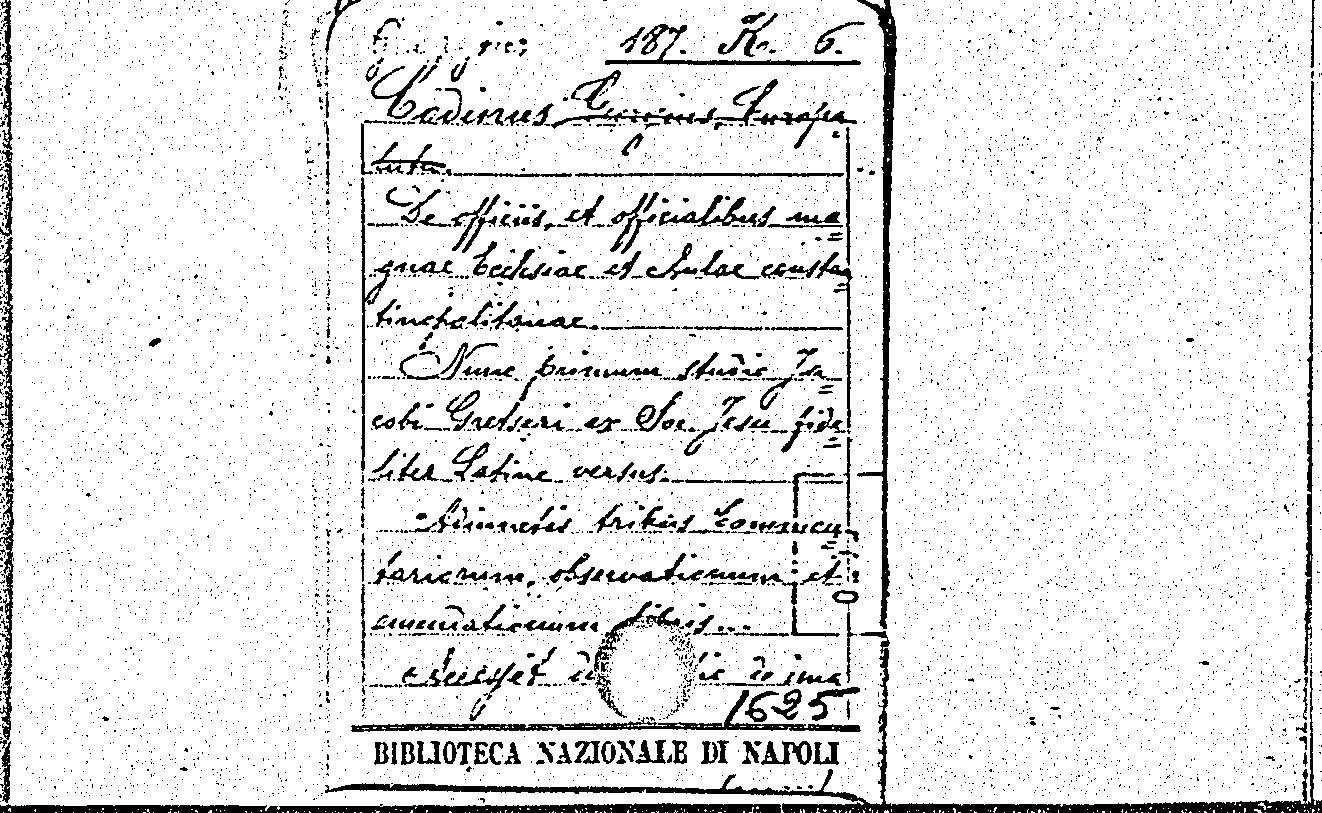 187. K. 6.
Codinus Georgius, Europa
latu.
De officiis, et officialibus ma
gnae Ecclesiae et Aulae constan
tinopolitanae.
Nunc primum studio Ja
cobi Gretseri ex Soc. Jesu fide
liter Latine versus.
Adiunctis tribus Commen
tariorum, observationum et
emendationum libris...
Accessit de ima
1625
BIBLIOTECA NAZIONALE DI NAPOLI